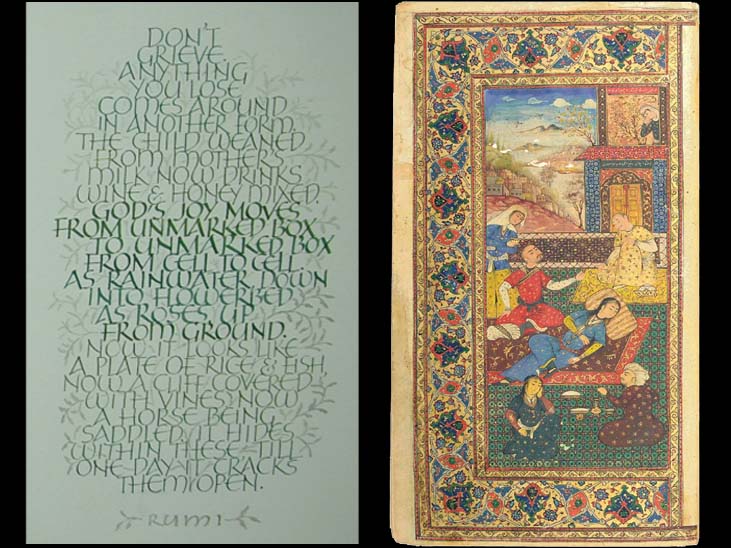 DON'T
GRIEVE.
ANYTHING
YOU LOSE
COMES AROUND
IN ANOTHER FORM.
THE CHILD WEANED
FROM MOTHER'S
MILK NOW DRINKS
WINE & HONEY MIXED.
GOD'S JOY MOVES
FROM UNMARKED BOX
TO UNMARKED BOX
FROM CELL TO CELL
AS RAINWATER, DOWN
INTO FLOWERBED
AS ROSES, UP
FROM GROUND.
NOW IT LOOKS LIKE
A PLATE OF RICE & FISH,
NOW A CLIFF COVERED
WITH VINES, NOW
A HORSE BEING
SADDLED. IT HIDES
WITHIN THESE, TILL
ONE DAY IT CRACKS
THEM OPEN.
RUMI